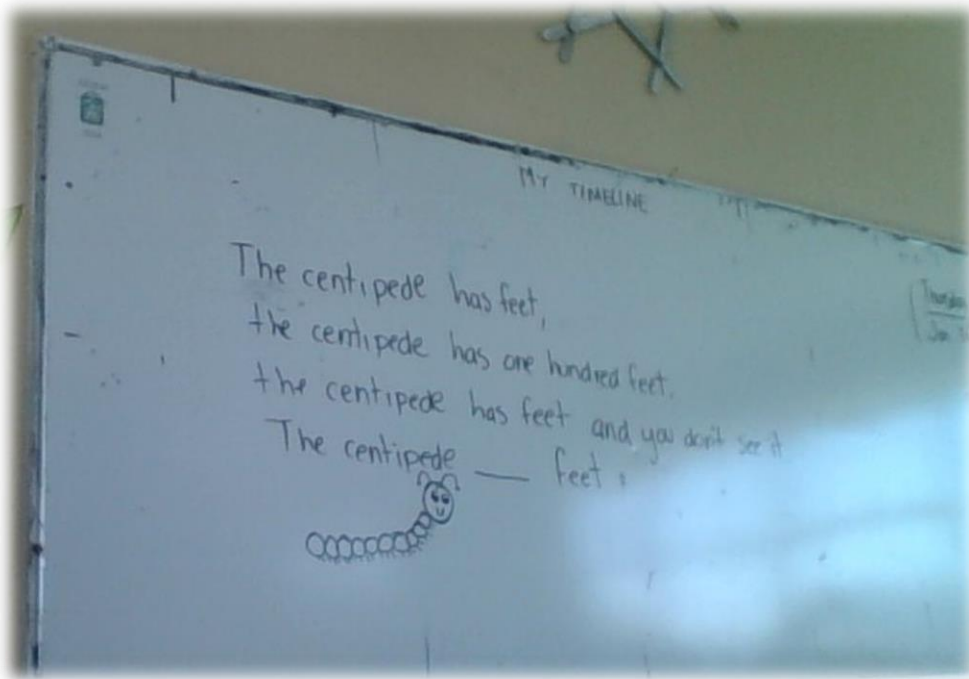 MY TIMELINE
The centipede has feet,
the centipede has one hundred feet.
the centipede has feet and you don't see it
The centipede ___ feet.